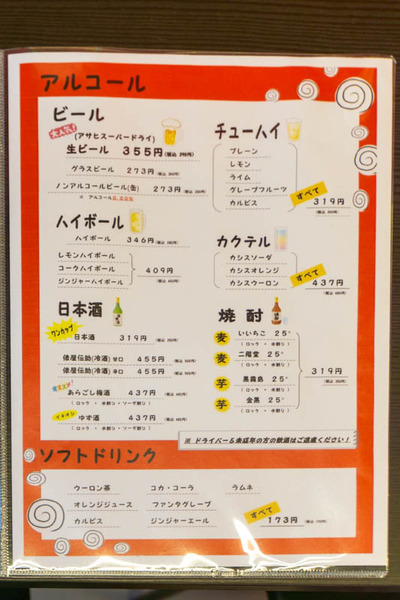 アルコール
ビール
大人気!
(アサヒスーパードライ)
生ビール 355円(税込 390円)
グラスビール 273円(税込 300円)
ノンアルコールビール(缶) 273円(税込 300円)
※ アルコール0.00%
ハイボール
ハイボール 346円(税込 380円)
レモンハイボール
コークハイボール
ジンジャーハイボール
409円
(税込 450円)
日本酒
ワンカップ
日本酒 319円(税込 350円)
俵屋伝助(冷酒)甘口 455円(税込 500円)
俵屋伝助(冷酒)辛口 455円(税込 500円)
オススメ
あらごし梅酒 437円(税込 480円)
(ロック ・ 水割り ・ソーダ割り)
イチオシ
ゆず酒 437円(税込 480円)
(ロック ・ 水割り ・ソーダ割り)
チューハイ
プレーン
レモン
ライム
グレープフルーツ
カルピス
すべて
319円
(税込 350円)
カクテル
カシスソーダ
カシスオレンジ
カシスウーロン
すべて
437円
(税込 480円)
焼酎
麦 いいちこ 25°
(ロック ・ 水割り)
麦 二階堂 25°
(ロック ・ 水割り)
芋 黒霧島 25°
(ロック ・ 水割り)
芋 金黒 25°
(ロック ・ 水割り)
319円
(税込 350円)
※ ドライバー&未成年の方の飲酒はご遠慮ください!
ソフトドリンク
ウーロン茶 コカ・コーラ ラムネ
オレンジジュース ファンタグレープ
カルピス ジンジャーエール
すべて
173円(税込 190円)